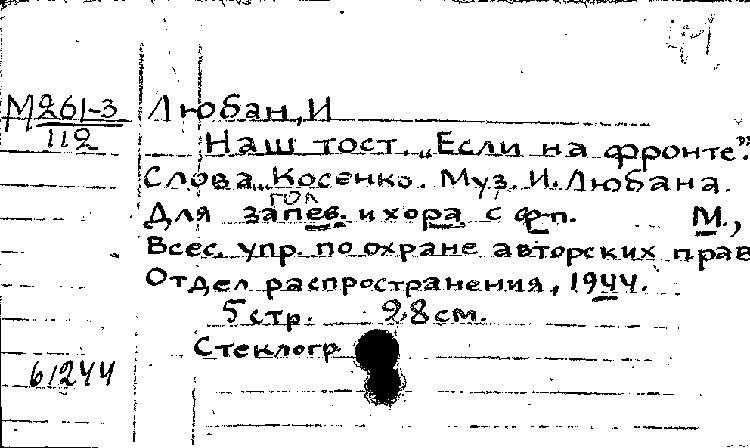 М261-3 Любан, И
112
Наш тост. „Если на фронте".
Слова Косенко. Муз. И. Любана.
гол
Для запев. и хора с ф-п. М.,
Всес. упр. по охране авторских прав
Отдел распространения, 1944.
5 стр. 28 см.
Стеклогр
61244